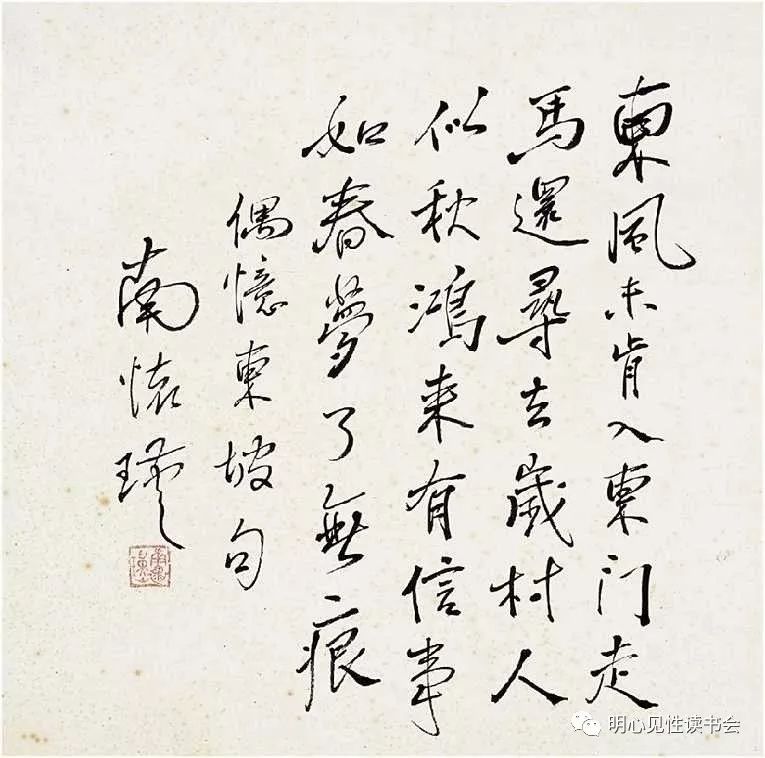 東風未肯入東门走
馬還尋去歲村人
似秋鴻来有信事
如春夢了無痕
偶憶東坡句
南懷瑾
明心见性读书会